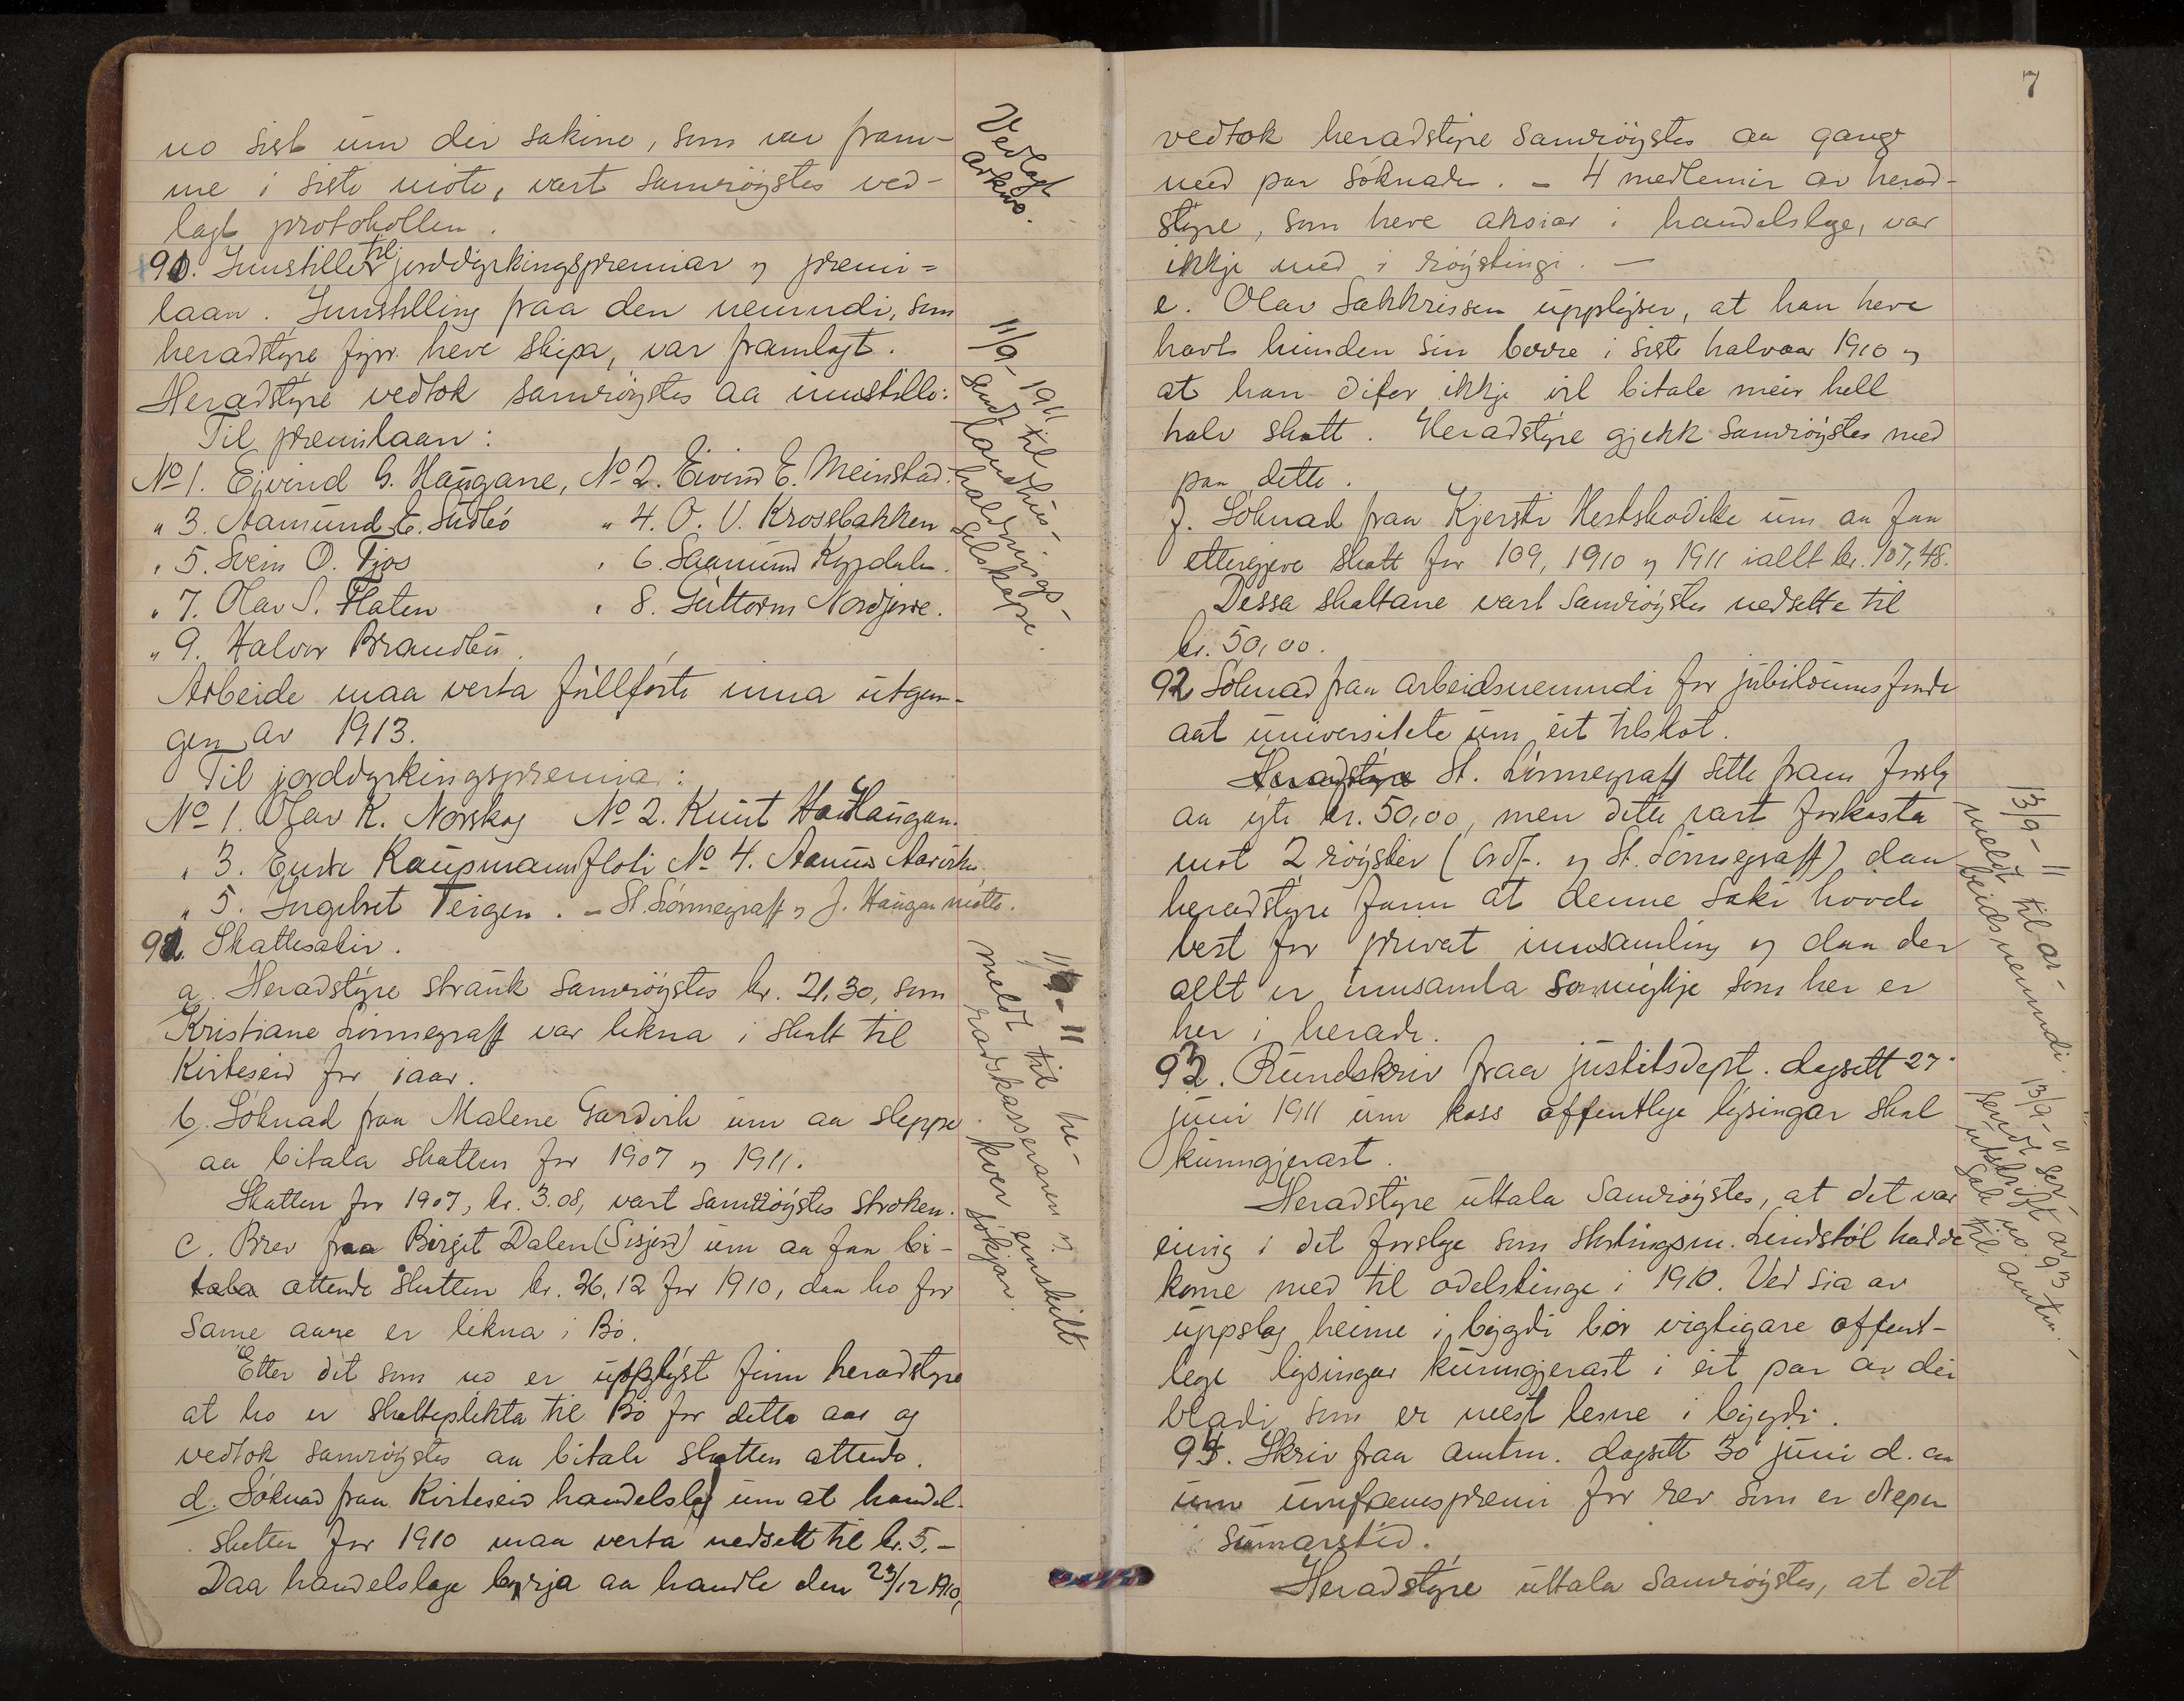 no sist um dei sakine, som var fram-
me i siste möte, vart samröystes ved-
lagt protokollen.
Vedlagt
arkivo.
90. Innstilling til jorddyrkingspremiar og premi-
laan. Innstilling fraa den nemndi, som
heradstyre fyrr heve skipa, var framlagt.
Heradstyre vedtok samröystes aa innstille:
Til premilaan:
No 1. Eivind G. Haugane, No 2. Eivind E. Meinstad.
" 3. Aamund E. Sudbö " 4. O. V. Krossbakken
" 5. Svein O. Tjos " 6. Saamund Kyrdalen.
" 7. Olav S. Flaten " 8. Guttorm Nordjore.
" 9. Halvor Brandlis.
Arbeide maa verta fullförte inna utgan-
gen av 1913.
11/9-1911
sendt til
landhus-
haldnings-
selskape.
Til jorddyrkingspremiar:
No 1. Olav K. Norskog No 2. Knut Haugan.
" 3. Kaupmannsfloti No 4. Aanun Aarvik.
" 5. Ingebret Teigen. - St. Lönnegraff og J. Haugan mötte.
91. Skattesakir.
a. Heradstyre strauk samröystes kr. 21,30, som
Kristiane Lönnegraff var likna i skatt til
Kviteseid for iaar.
b. Söknad fraa Malene Gardvik um aa sleppe
aa bitala skatten for 1907 og 1911.
Skatten for 1907, kr. 3.08, vart samröystes stroken.
c. Brev fraa Birgit Dalen (Sisjord) um aa faa bi-
tala attende skatten kr. 26,12 for 1910, daa ho for
same aare er likna i Bö.
Etter det som no er upplyst finn heradstyre
at ho er skatteplikta til Bö for detta aar og
vedtok samröystes aa bitala skatten attende.
d. Söknad fraa Kviteseid handelslag um at handel-
skatten for 1910 maa verta nedsett til kr. 5,-
Daa handelslage byrja aa handle den 23/12 1910,
11/9-11
meldt til he-
radskasseraren og
kver einskilt
sökjar.
7
vedtok heradstyre samröystes aa gange
med paa söknade. - 4 medlemir av herad-
styre, som heve aksiar i handelslage, var
ikkje med i röystingi. -
e. Olav Sakkrissen upplyser, at han heve
havt hunden sin berre i siste halvaar 1910 og
at han difor ikkje vil bitale meir hell
halv skatt. Heradstyre gjekk samröystes med
paa dette.
f. Söknad fraa Kjersti Hestskodike um aa faa
ettergjeve skatt for 109, 1910 og 1911 iallt kr. 107,48.
Dessa skattane vart samröystes nedsette til
kr. 50,00.
92 Söknad fraa arbeidsnemndi for jubilæumsfonde
aat universitete um eit tilskot.
Heradstyre St. Lönnegraff sette fram forslag
aa yte kr. 50,00, men dette vart forkasta
mot 2 röyster (Ordf. og St. Lönnegraff), daa
heradstyre fann at denne saki hövde
best for privat innsamling og daa der
allt er innsamla som her er
her i herade.
13/9-11
meldt til ar-
beidsnemndi.
93. Rundskriv fraa justitsdept. dagsett 27.
juni 1911 um koss offentlege lysingar skal
kunngjerast.
Heradstyre uttala samröystes, at det var
einig i det forslage som stortingsm. Lindstöl hadde
kome med til odelstinge i 1910. Ved sia av
uppslag heime i bygdi bör vigtigare offent-
lege lysingar kunngjerast i eit par av dei
bladi, som er mest lesne i bygdi.
13/9-11
sendt ser-
utskrift av
sak no. 93
til amtm.
94. Skriv fraa amtm. dagsett 30 juni d. aa
um umframspremi for rev som er drepen
sumarstid.
Heradstyre uttala samröystes, at det